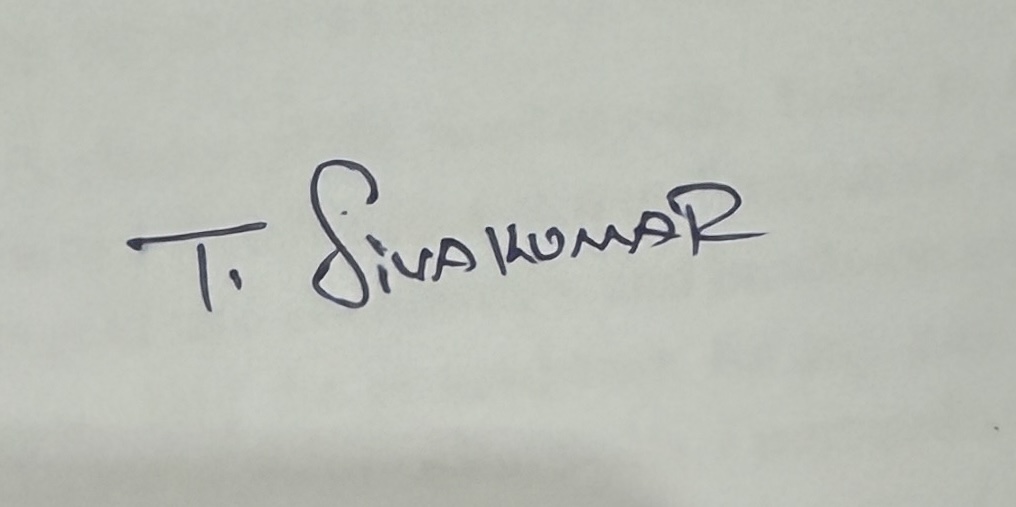 T. SivAKUMAR